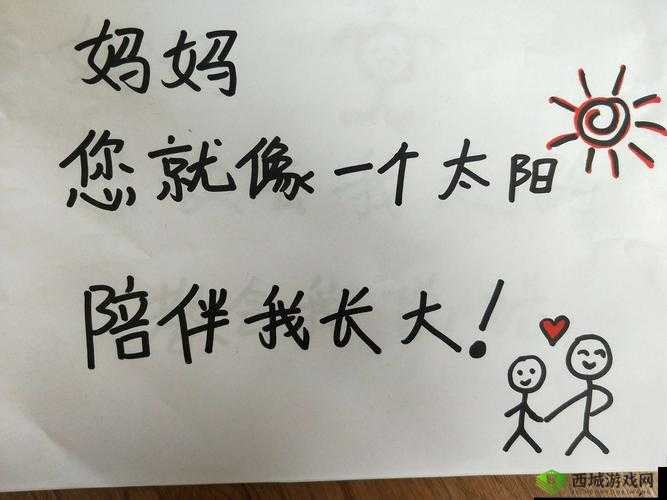 妈妈
您就像一个太阳
陪伴我长大！
西城游戏网